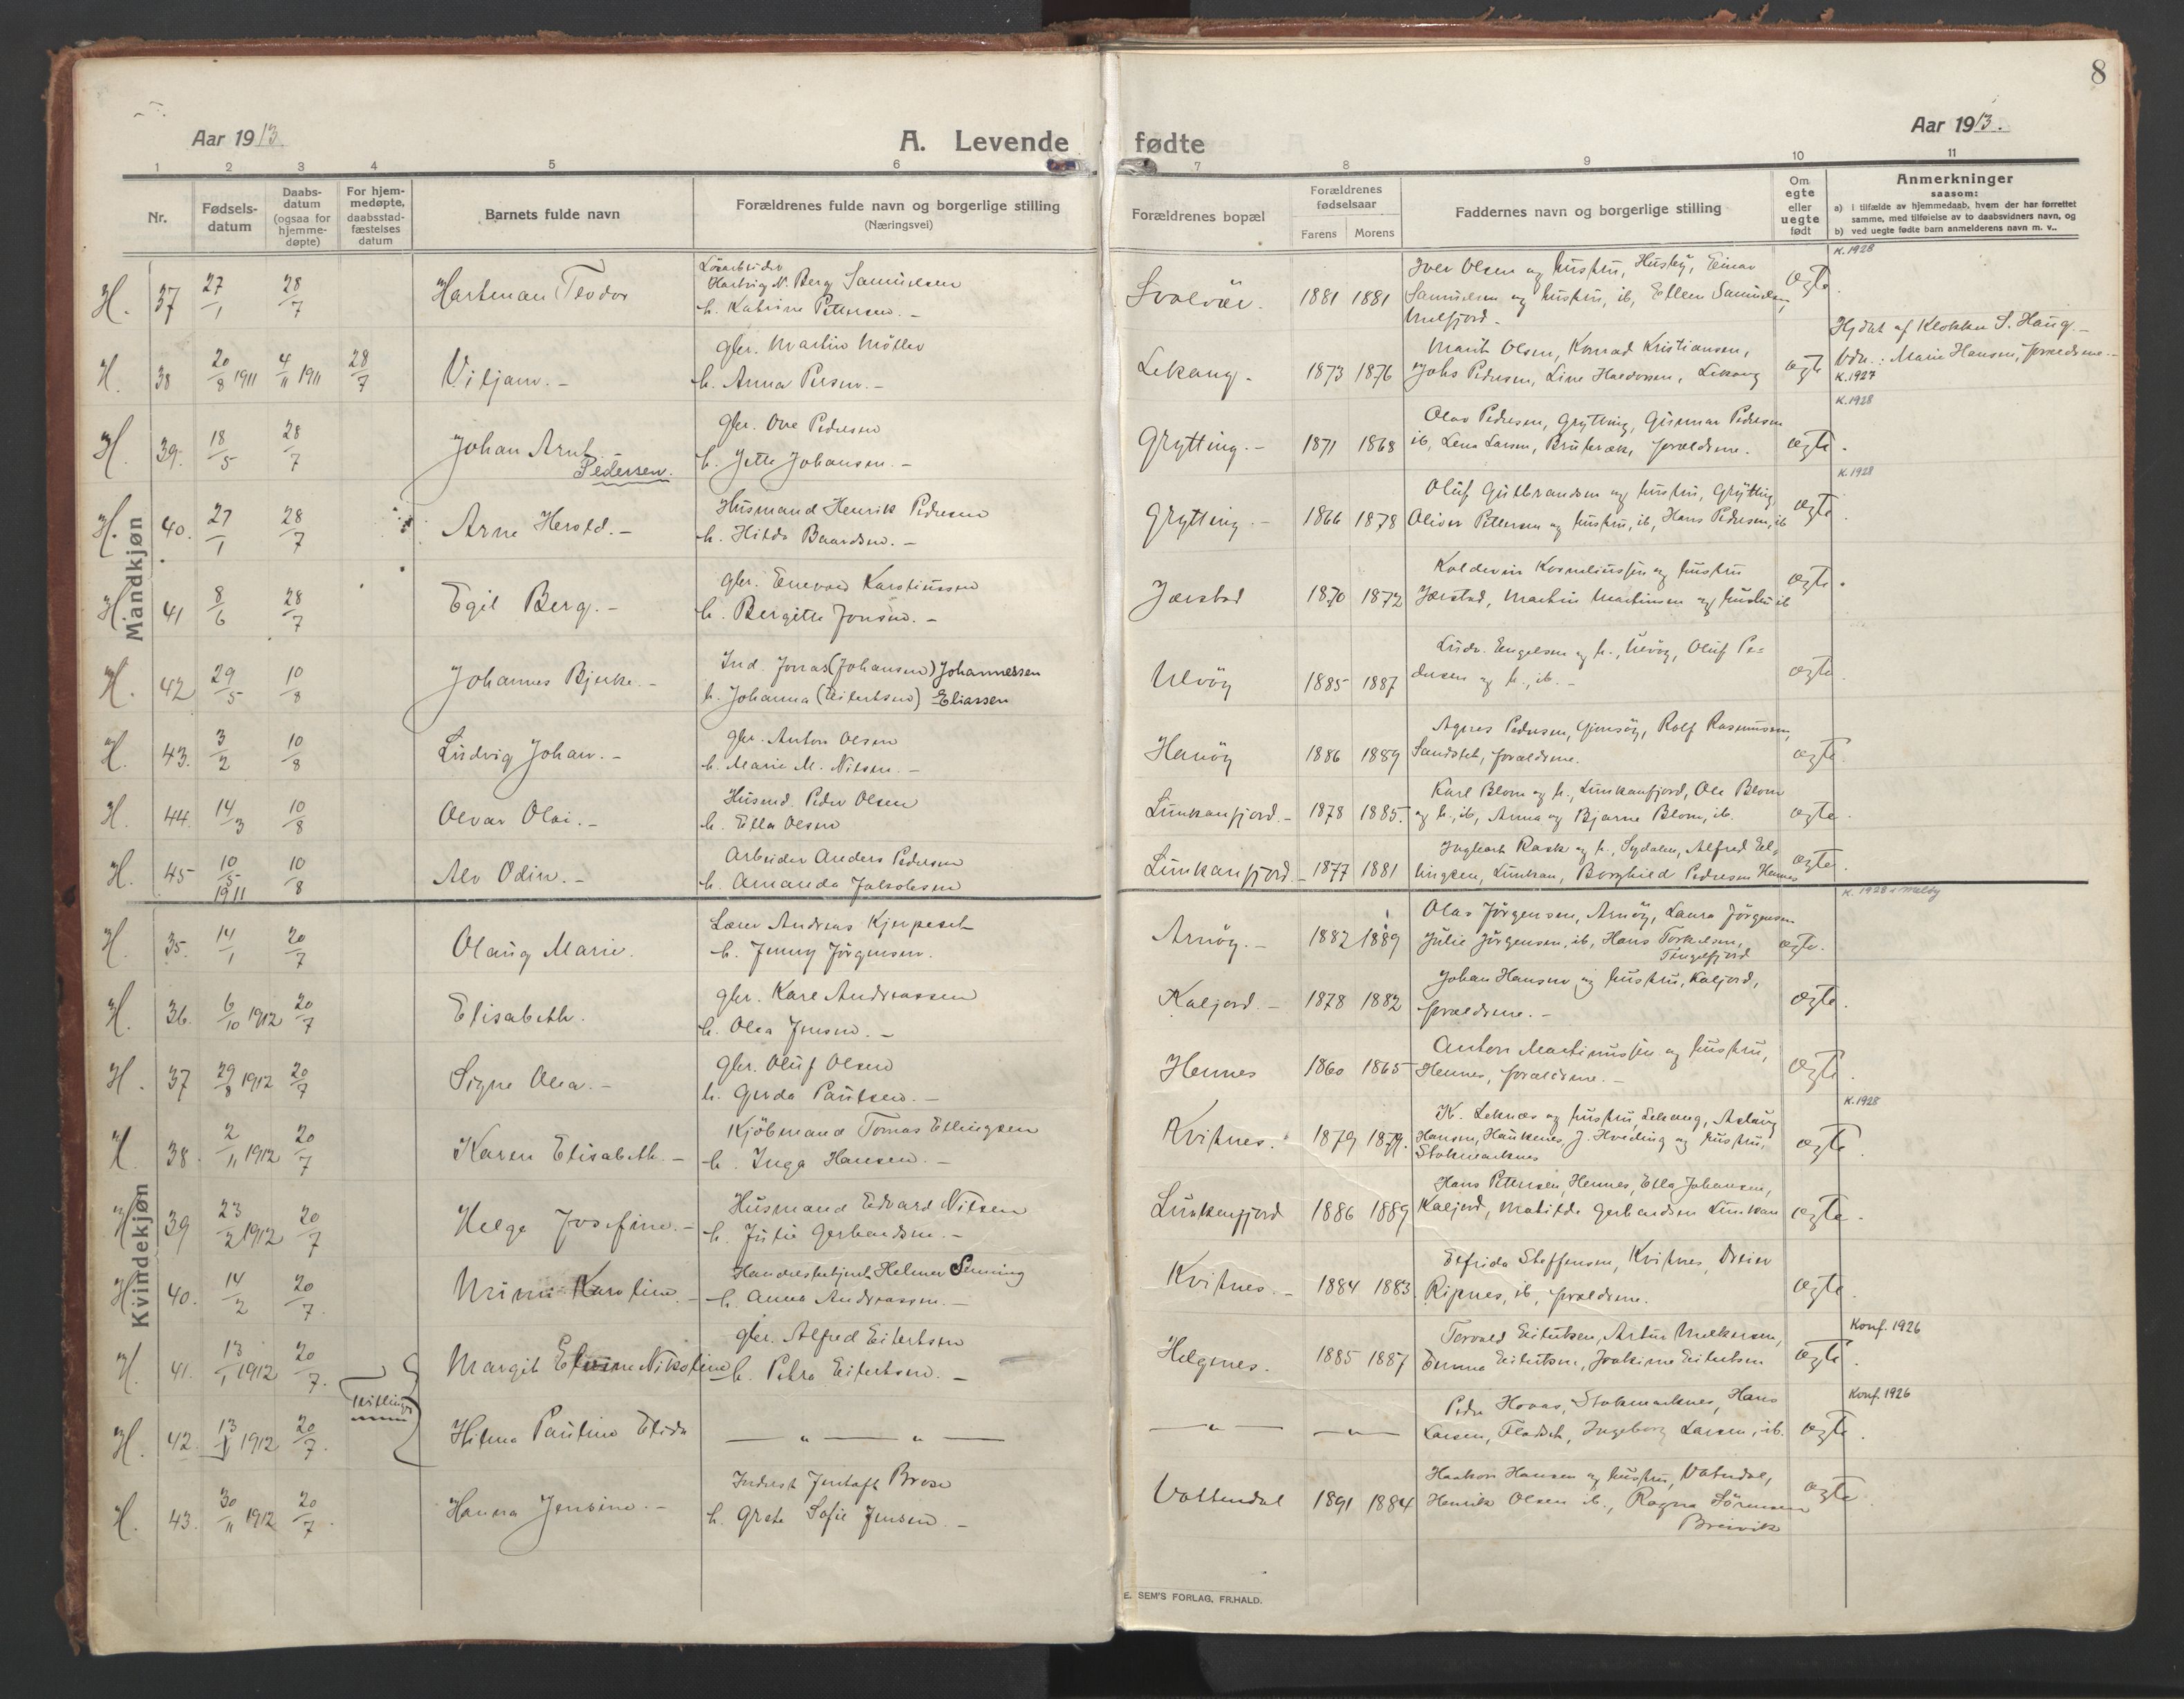 8
Aar 1913
A. Levende fødte
Aar 1913.
1 2 3 4 5 6 7 8 9 10 11
Nr.
Fødsels-
datum
Daabs-
datum
(ogsaa for
hjemme-
døpte)
For hjem-
medøpte,
daabsstad-
fæstelses
datum
Barnets fulde navn
Forældrenes fulde navn og borgerlige stilling
(Næringsvei)
Forældrenes bopæl
Forældrenes
fødselsaar
Farens Morens
Faddernes navn og borgerlige stilling
Om
egte
eller
uegte
født
Anmerkninger
saasom:
a) i tilfælde av hjemmedaab, hvem der har forrettet
samme, med tilføielse av to daabsvidners navn, og
b) ved uegte fødte barn anmelderens navn m. v..
Mandkjøn
K. 1928
H. 37 27/1 28/7 Hartman Teodor
Løsarbeider
Hartvig N. Berg Samuelsen
h. Katrine Pettersen. -
Svolvær. 1881 1881
Iver Olsen og hustru, Husby, Einar
Samuelsen og hustru, ib, Ellen Samuelsen,
ægte.
H. 38 20/8 1911 4/11 1911 28/7 Viljam. -
Gbr. Martin Møller
h. Anna Persen. -
Lekang. 1873 1876
Marit Olsen, Konrad Kristiansen,
Johs Pedersen, Line Haldorsen, Lekang
ægte
Hjdøbt af Klokker S. Haug. -
Vdn.: Marie Hansen, forældrene. -
K. 1927
K. 1928
H. 39. 18/5 28/7 Johan Arnt. -
Pedersen.
Gbr. Ove Pedersen
h. Jette Johansen. -
Grytting. - 1871 1868
Olav Pedersen, Grytting, Gunnar Pedersen
ib, Lena Larsen, forældrene.
ægte.
K. 1928
H. 40. 27/1 28/7 Arne Herold. -
Husmand Henrik Pedersen
h. Hilda Baardsen. -
Grytting. - 1866 1878
Oluf Gulbrandsen og hustru, Grytting
Oliver Pettersen og hustru, ib, Hans Pedersen, ib
ægte.
H. 41 8/6 28/7 Egil Berg. -
Gbr. Enevold Karstiussen
h. Bergitte Jonsen. -
Jørstad 1870 1872
Kaldevin Korneliussen og hustru
Jørstad, Martin Martinsen og hustru ib
ægte.
H. 42 29/5 10/8 Johannes Bjerke. -
Ind. Jonas (Johansen) Johannessen
h. Johanna (Eilertsen) Eliassen
Ulvøy 1885 1887
Ludv. Engelsen og h., Ulvøy, Oluf Pe-
dersen og h., ib. -
ægte.
H. 43. 3/2 10/8 Ludvig Johan. -
Gbr. Anton Olsen
h. Marie M. Nilsen. -
Hanøy 1886 1889
Agnes Pedersen, Gimsøy, Rolf Rasmussen,
Sandslet, forældrene.
ægte.
H. 44. 14/3 10/8 Olvar Olai. -
Husmd. Peder Olsen
h. Ella Olsen
Lunkanfjord. - 1878 1885.
Karl Blom og h., Lunkanfjord, Ole Blom
og h., ib, Anna og Bjarne Blom, ib.
ægte.
H. 45 10/5 1911 10/8 Alv Odin. -
Arbeider Anders Pedersen
h. Amanda Jakobsen
Lunkanfjord. - 1877 1881
Ingbart Rask og h., Sydalen, Alfred El-
lingsen, Lunkan, Borghild Pedersen Hennes
ægte.
Kvindekjøn
K. 1928 i Melby
H. 35. 14/1 20/7 Olaug Marie.
Lærer Andreas Kjerpeset
h. Jenny Jørgensen.
Arnøy. - 1882 1889
Olav Jørgensen, Arnøy, Laura Jørgensen
Julie Jørgensen, ib, Hans Torkelsen,
Tengelfjord
ægte.
H. 36. 6/10 1912 20/7 Elisabeth.
Gbr. Karl Andreassen
h. Olea Jensen. -
Kaljord. - 1878 1882
Johan Hansen og hustru, Kaljord,
forældrene. -
ægte.
H. 37 29/8 1912 20/7 Signe Olea. -
Gbr. Oluf Olsen
h. Gerda Paulsen. -
Hennes 1860 1865
Anton Martinussen og hustru,
Hennes, forældrene. -
ægte.
K. 1928
H. 38. 2/11 1912 20/7 Karen Elisabeth. -
Kjøbmand Tomas Ellingsen
h. Inga Hansen. -
Kvitnes. 1879 1879.
K. Leknæs og hustru, Lekang, Aslaug
Hansen, Haukenes, J. Hveding og hustru,
Stokmarknes
ægte.
H. 39 23/2 1912 20/7 Helga Josefine. -
Husmand Edvard Nilsen
h. Julie Gerhardsen. -
Lunkanfjord 1886 1889
Hans Pettersen, Hennes, Ella Johansen,
Kaljord, Matilde Gerhardsen Lunkan
ægte.
H. 40. 14/2 20/7. Karoline. -
Handelsbetjent Helmer Senning
h. Anna Andreassen. -
Kvitnes. - 1884 1883.
Elfrida Steffensen, Kvitnes,
Ripnes, ib, forældrene.
ægte.
Konf. 1926
H. 41. 13/1 1912 20/7. Margit Nikoline
Gbr. Alfred Eilertsen
h. Petra Eilertsen. -
Helgenes. 1885 1887
Torvald Eilertsen, Artur Mikkelsen,
Emma Eilertsen, Joakime Eilertsen
ægte.
Tvillinger
Konf. 1926
H. 42. 13/1 1912 20/7. Hilma Pauline Elida
— " — " —
— " — — " —
Peder Hovas, Stokmarknes, Hans
Larsen, Fladset, Ingeborg Larsen, ib.
ægte.
H. 43. 30/11 1912 20/7. Hanna Jensine. -
Inderst Jentoft Brose
h. Grete Sofie Jensen. -
Vottendal 1891 1884
Haakon Hansen og hustru, Vatndal,
Henrik Olsen ib., Ragna Sørensen
Breivik
ægte.
E. SEM'S FORLAG, FR.HALD.